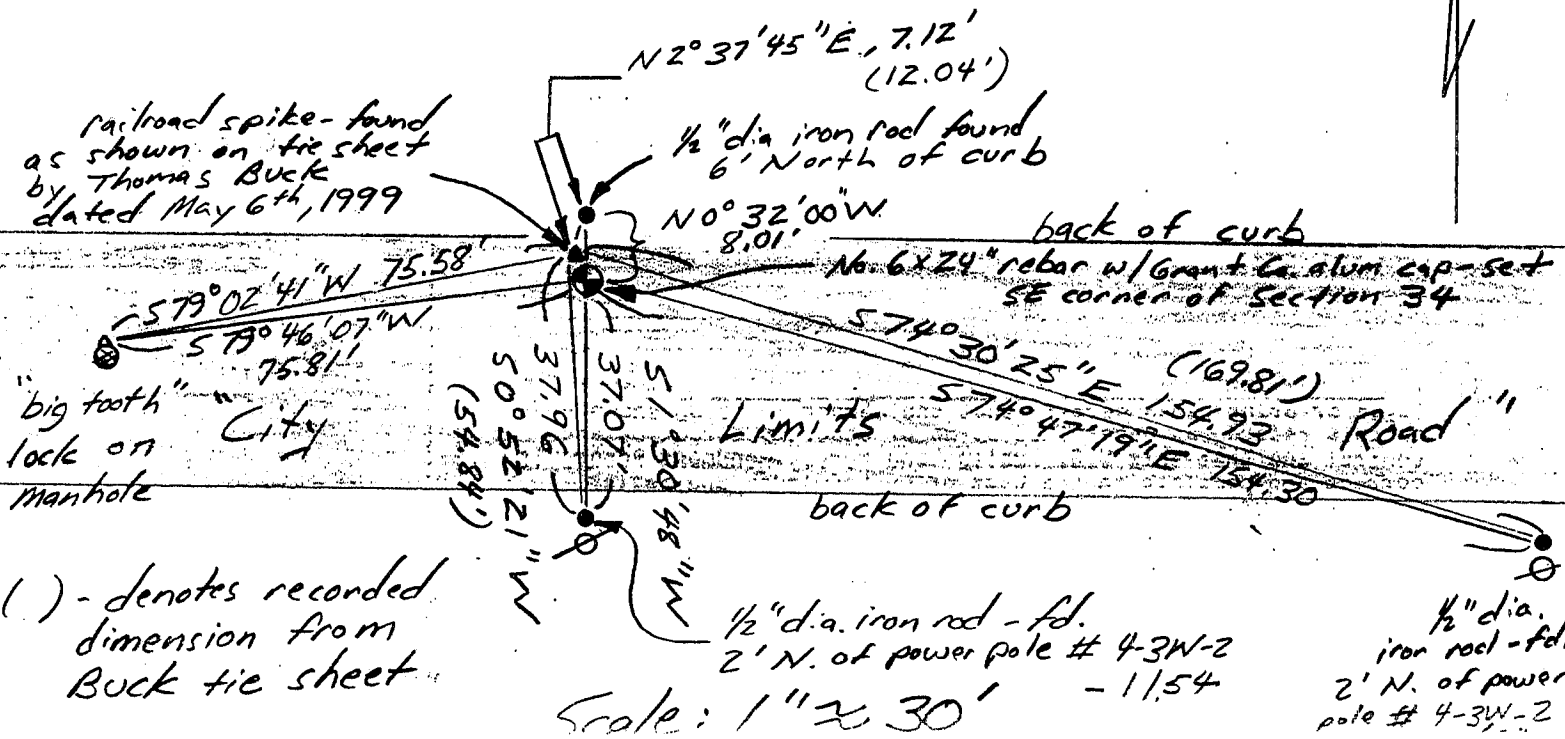 N 2° 37' 45" E, 7.12'
(12.04')
railroad spike - found
as shown on tie sheet
by Thomas Buck
dated May 6th, 1999
1/2" dia iron rod found
6' North of curb
N 0° 32' 00" W
8.01'
back of curb
No. 6x24" rebar w/Grant Co. alum cap - set
SE corner of Section 34
S 79° 02' 41" W 75.58'
S 79° 46' 07" W
75.81'
"big tooth"
lock on
manhole
"City Limits Road"
S 74° 30' 25" E 154.93
(169.81')
S 74° 47' 19" E 154.30
S 1° 30' 48" W
37.07'
37.96
S 0° 52' 21" W
(54.84')
back of curb
( ) - denotes recorded
dimension from
Buck tie sheet
1/2" dia. iron rod - fd.
2' N. of power pole # 4-3W-2
- 1154
1/2" dia.
iron rod - fd.
2' N. of power
pole # 4-3W-2
Scale: 1" ≈ 30'